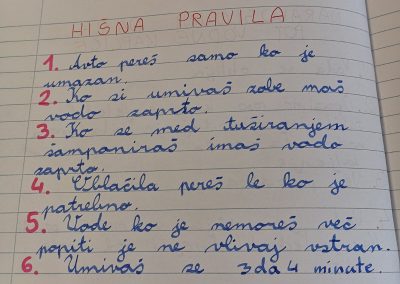 HIŠNA PRAVILA
1. Avto pereš samo ko je
umazan.
2. Ko si umivaš zobe maš
vodo zaprto.
3. Ko se med tuširanjem
šampaniraš imaš vodo
zaprto.
4. Oblačila pereš le ko je
patrebno.
5. Vode ko je nemoreš več
popiti je ne vlivaj vstran.
6. Umivaš se 3 da 4 minute.